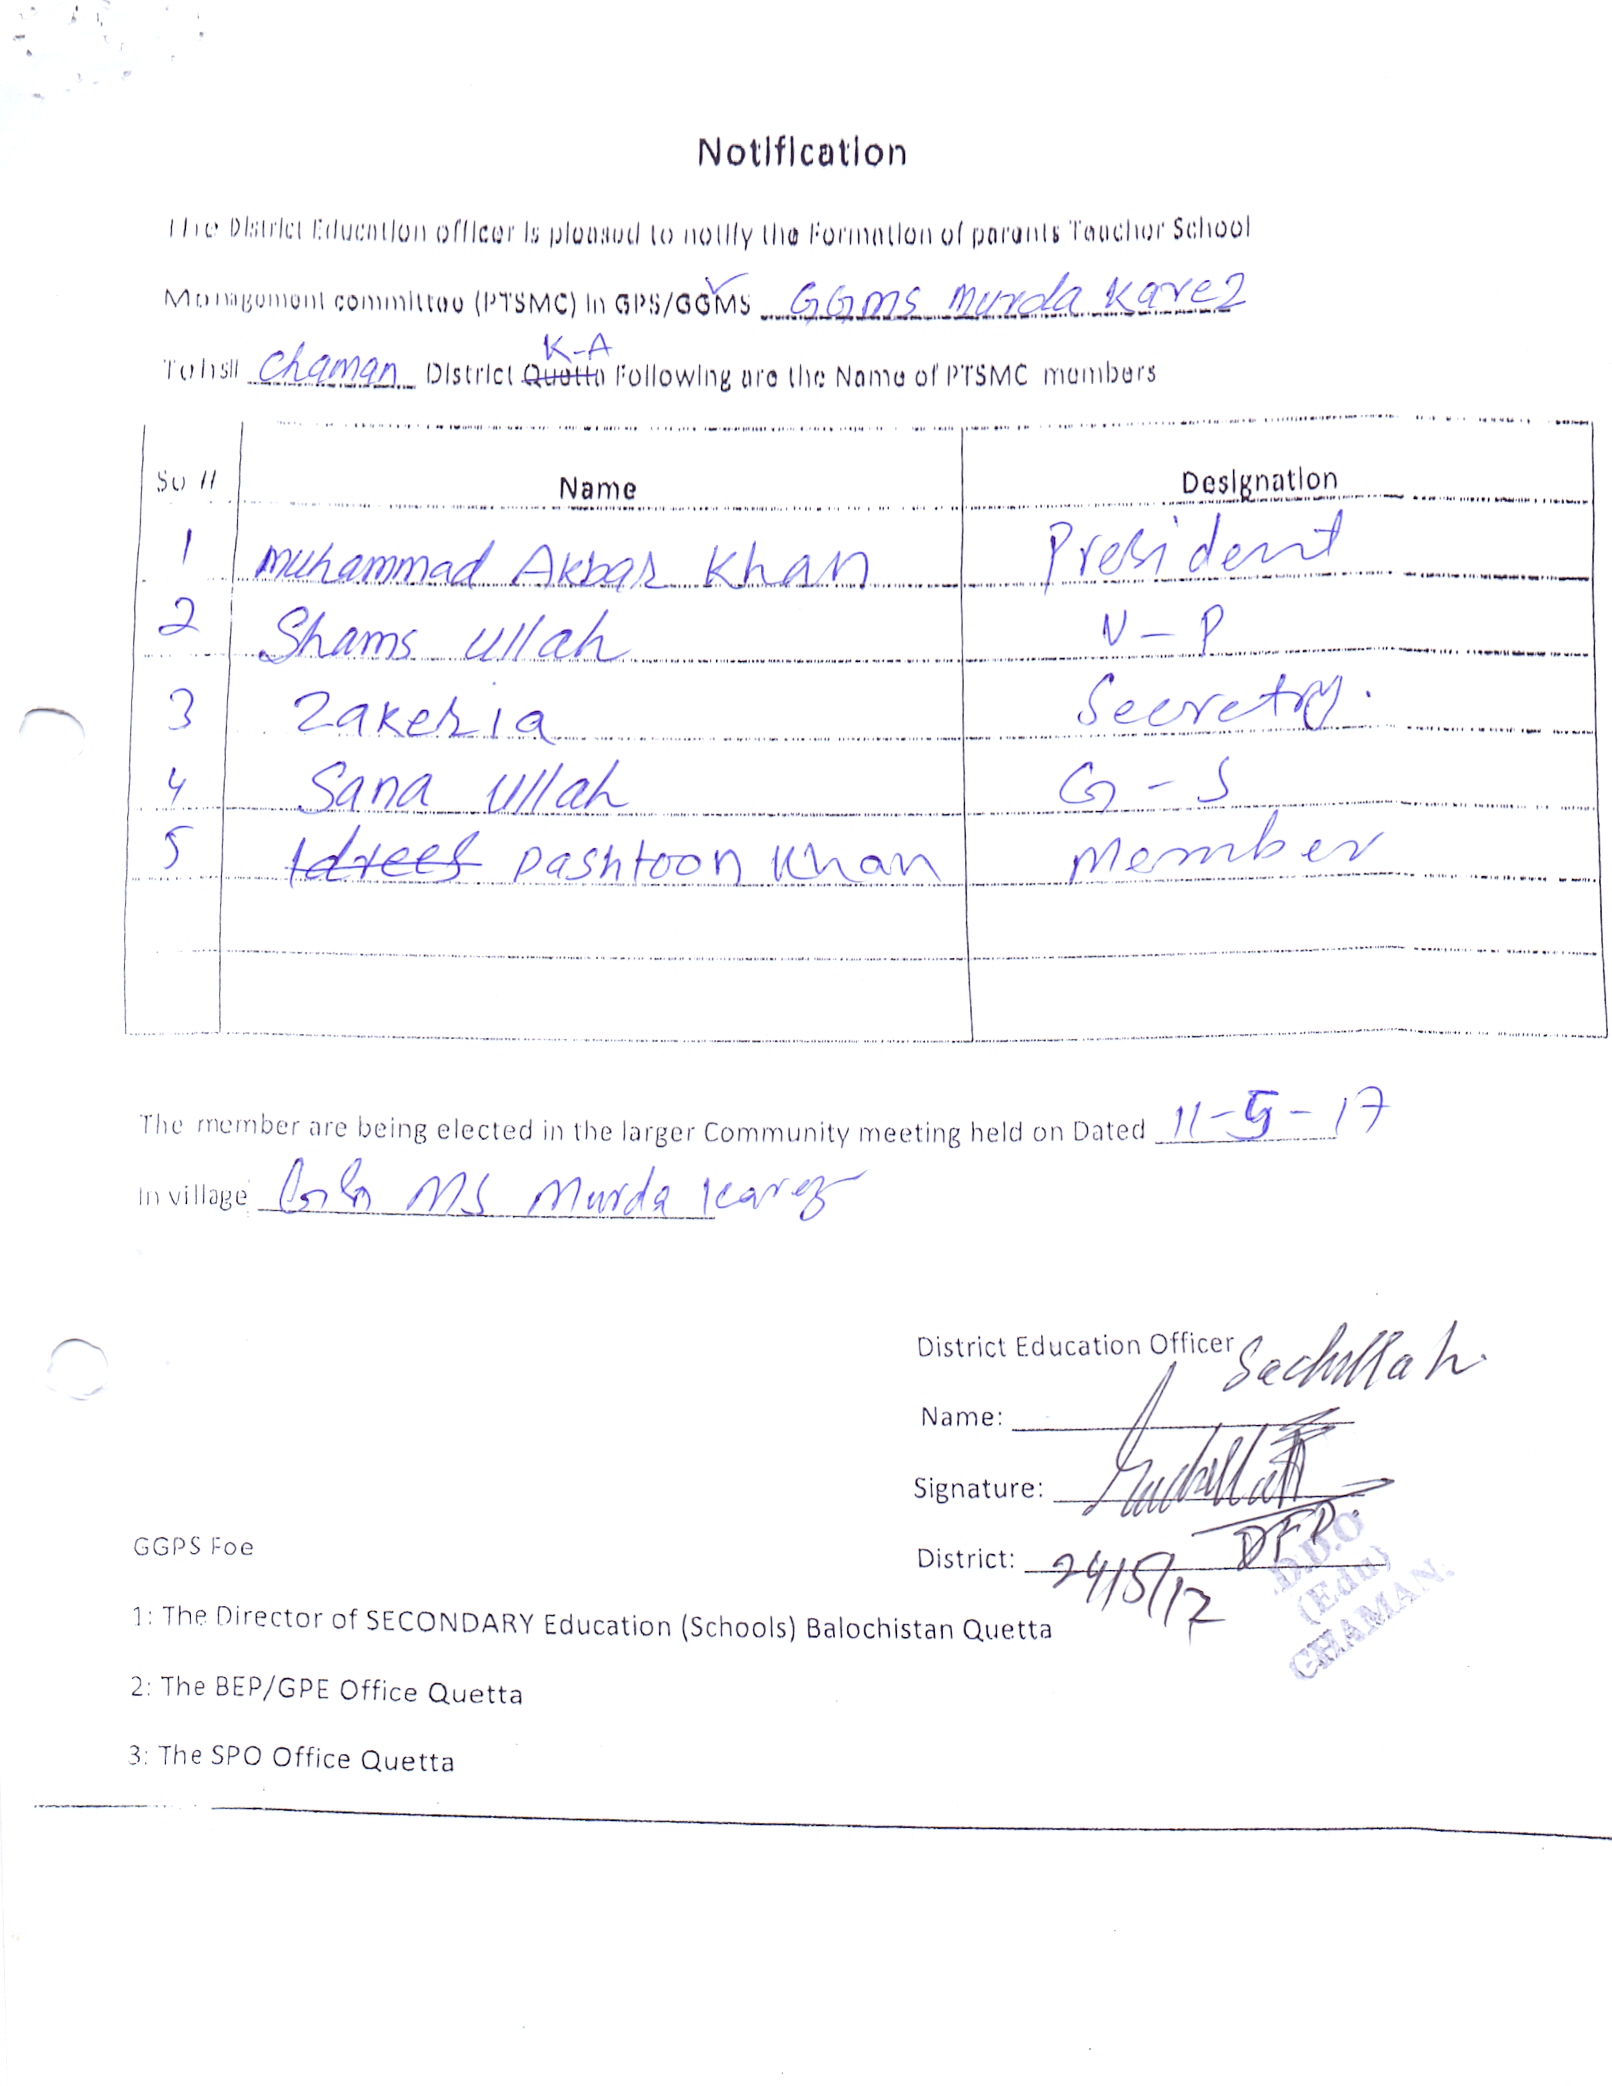 Notification
The District Education officer is pleased to notify the Formation of parents Teacher School
Management committee (PTSMC) In GPS/GGMS GGms Murda Karez
K-A
Tehsil Chaman District Quetta Following are the Name of PTSMC members
Se # Name Designation
1 Muhammad Akbar Khan President
2 Shams Ullah V-P
3 Zakeria Secretry.
4 Sana Ullah G-S
5 Idrees Pashtoon Khan Member
The member are being elected in the larger Community meeting held on Dated 11-5-17
In village GG MS Murda Karez
District Education Officer Sadullah
Name:
Signature:
District: 24/5/17
D.D.O
(Edu)
CHAMAN.
GGPS Foe
1: The Director of SECONDARY Education (Schools) Balochistan Quetta
2: The BEP/GPE Office Quetta
3: The SPO Office Quetta